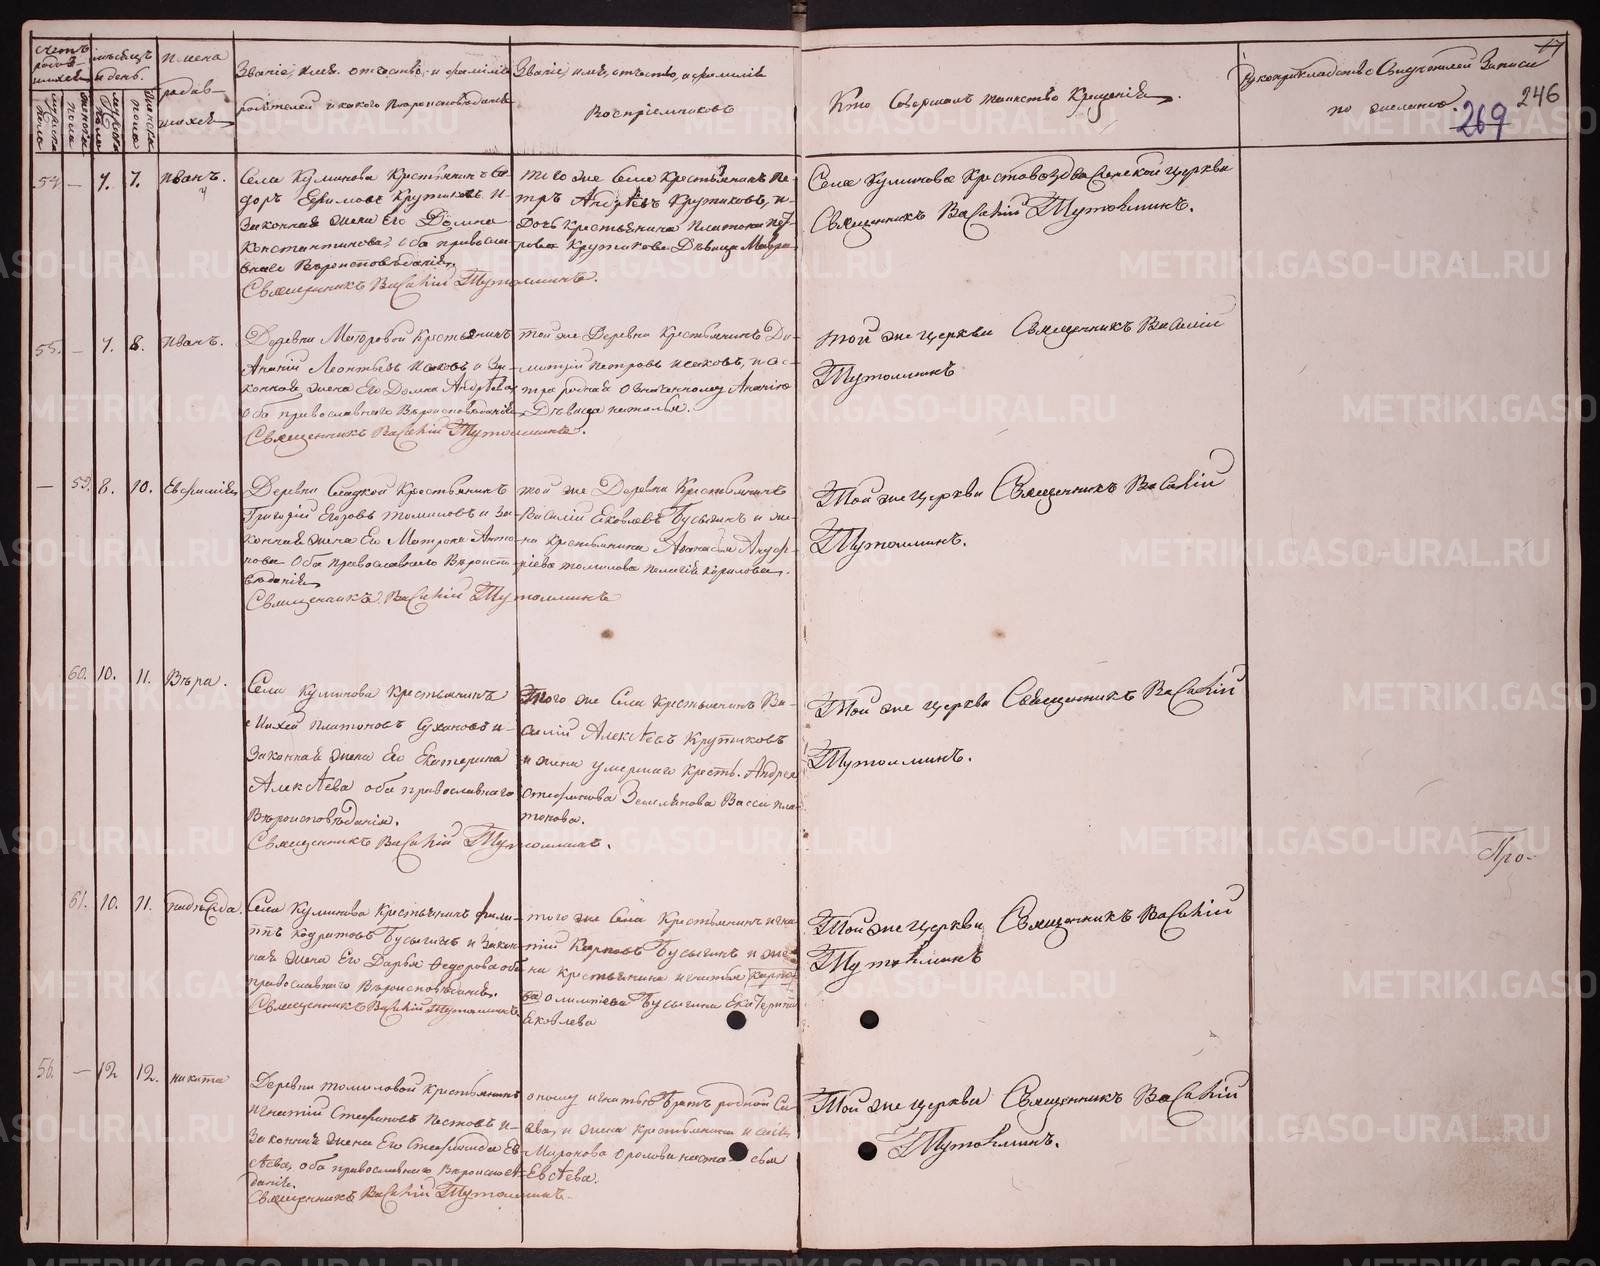 Счетъ родив-шихся
мѣсяцъ и день.
Имена родив-шихся
Званіе, имя, отчество, и фамилія родителей и какого вѣроисповѣданія
Званіе, имя, отчество, и фамилія Воспріемниковъ
Кто Совершалъ таинство Крещенія.
Рукоприкладство Свидѣтелей Записи по желанію.
17
246
269
54 — 7. 7. Иванъ.
Села Куликова Крестьянинъ Ѳе-
доръ Ефимовъ Крутиковъ и
Законная жена Его Домна
Константинова, оба православ-
наго Вѣроисповѣданія.
Священникъ Василій Тутолминъ.
того же Села Крестьянинъ Пе-
тръ Андреевъ Крутиковъ, и
Дочь Крестьянина Платона Пет-
рова Крутикова Дѣвица Мавра
Села Куликова Крестовоздвиженской церкви
Священникъ Василій Тутолминъ.
55. — 7. 8. Иванъ.
Деревни Крестьянинъ
Ананій Леонтьевъ Исаковъ и За-
конная жена Его Домна Андреева
оба православнаго Вѣроисповѣданія
Священникъ Василій Тутолминъ.
той же Деревни Крестьянинъ Ди-
митрій Петровъ Исаковъ, и сес-
тра родная означенному Ананію
Дѣвица Наталья.
той же церкви Священникъ Василій
Тутолминъ
— 59. 8. 10. Евфимія
Деревни Сладкой Крестьянинъ
Григорій Егоровъ Томиловъ и За-
конная жена Его Матрона Анто-
нова Оба православнаго Вѣроиспо-
вѣданія
Священникъ Василій Тутолминъ
той же Деревни Крестьянинъ
Василій Яковлевъ Бусыгинъ и же-
на Крестьянина Аѳанасья Андре-
іева Томилова Пелагія Кирилова.
Той же церкви Священникъ Василій
Тутолминъ.
60. 10. 11. Вѣра.
Села Куликова Крестьянинъ
Михей Платоновъ Сухановъ и
Законная жена Его Екатерина
Алексѣева оба православнаго
Вѣроисповѣданія.
Священникъ Василій Тутолминъ.
Того же Села Крестьянинъ Ва-
силій Алексѣевъ Крутиковъ
и жена умершаго Кресть. Андрея
Стефанова Васса Пла-
тонова.
Той же церкви Священникъ Василій
Тутолминъ.
61. 10. 11. Надѣжда.
Села Куликова Крестьянинъ Фили-
ппъ Кодратовъ Бусыгинъ и Закон-
ная жена Его Дарья Ѳедорова оба
православнаго Вѣроисповѣданія.
Священникъ Василій Тутолминъ
того же Села Крестьянинъ Игна-
тій Карповъ Бусыгинъ и же-
на крестьянина Игнатья
Бусыгина Екатерина
Яковлева
Той же церкви Священникъ Василій
Тутолминъ
Про-
56. — 12 12. Никита
Деревни Томиловой Крестьянинъ
Игнатій Стефановъ и
Законная жена Его Стефанида Ев-
сѣева, оба православнаго Вѣроисповѣ-
данія.
Священникъ Василій Тутолминъ.
оному Игнатью Братъ родной Са-
ва, и жена крестьянина
Миронова Орлова Настасья
Евсѣева.
Той же церкви Священникъ Василій
Тутолминъ.
METRIKI.GASO-URAL.RU